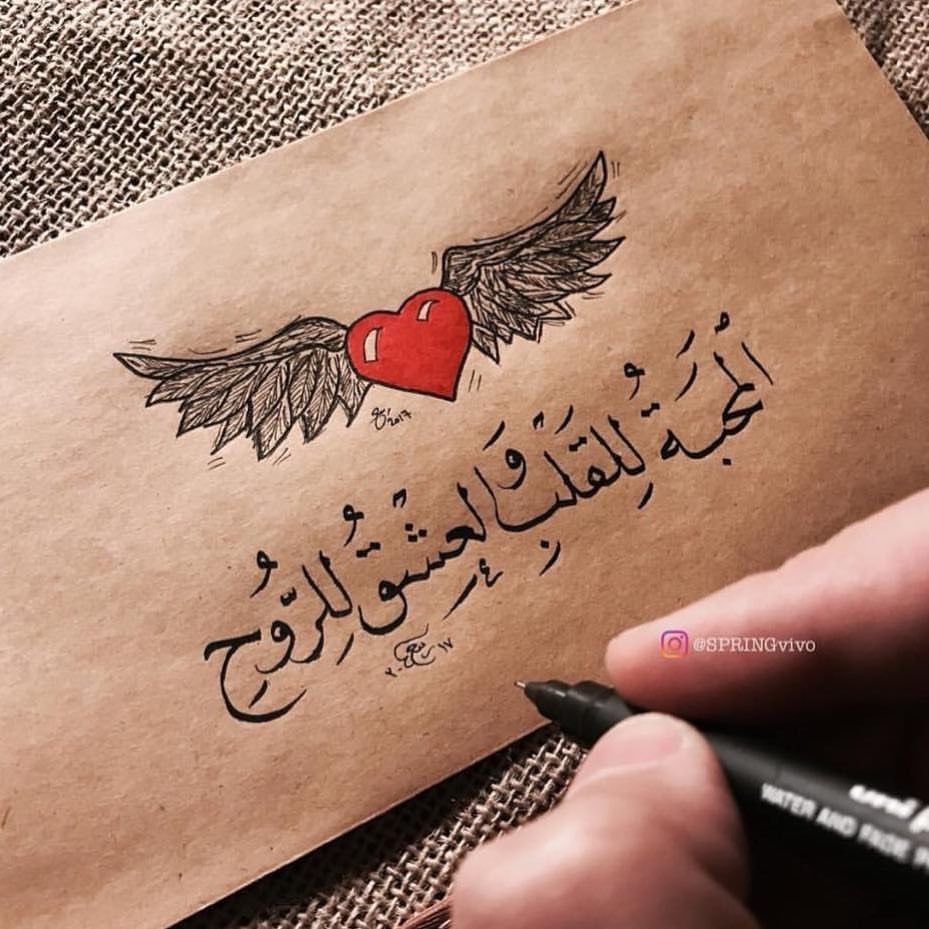 2017
المحَبةُ لِلقَلبِ وَالعِشقُ لِلرّوُحِ
ربيع ٢٠١٧
@SPRINGvivo
uni
WATER AND FADE